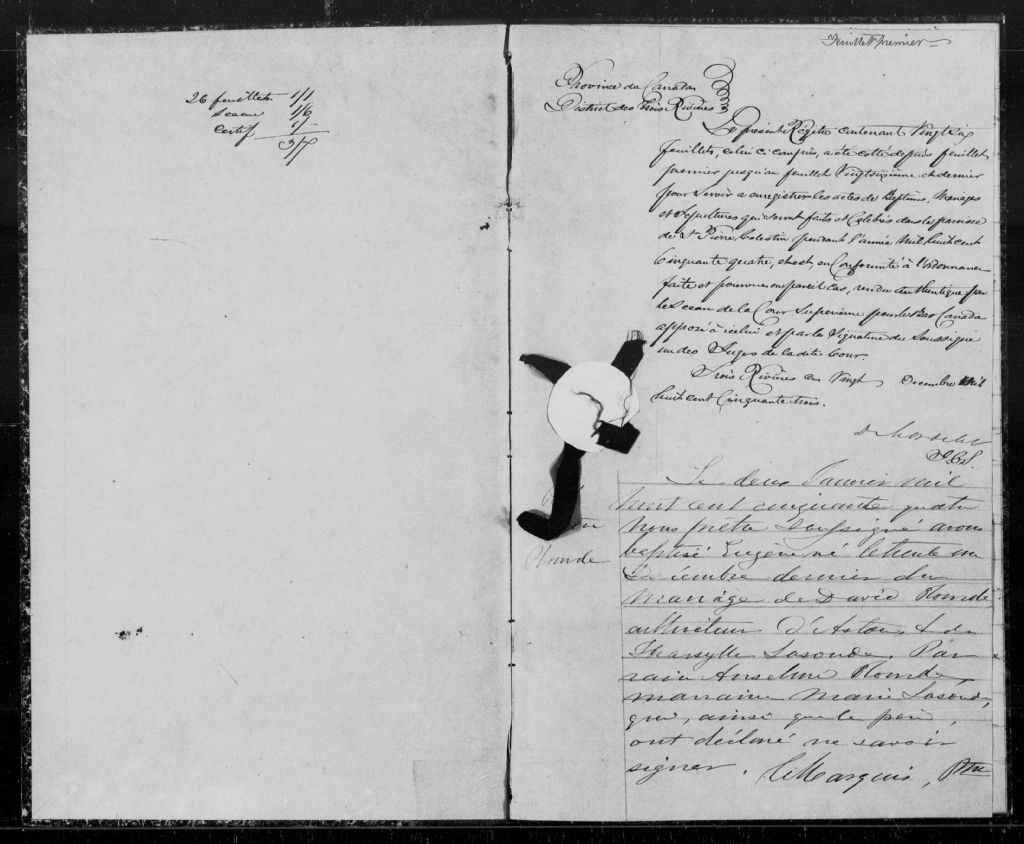 26 feuillets 1/1
Sceau 1/6
Certif 1/-
3/7
Feuillet premier
Province du Canada
District des Trois Rivières
Le présent Régitre contenant Vingt six
feuillets, celui ci compris, a été cotté depuis feuillet
premier jusqu'au feuillet Vingtsixième et dernier
pour servir a enregistrer les actes de Baptêmes, Mariages
et Sépultures qui seront faits et Célébrés dans la paroisse
de St Pierre Celestin pendant l'année Mil huit cent
Cinquante quatre, et est, en Conformité à l'ordonnance
faite et pourvue en pareil cas, rendu authentique par
le Sceau de la Cour Supérieure pour le Bas Canada
apposé à icelui et par la Signature du Soussigné
un des Juges de la dite Cour.
Trois Rivières ce Vingt Decembre Mil
huit cent Cinquante trois.
J.C.S.
Le deux Janvier mil
huit cent cinquante quatre
Nous prêtre soussigné avons
baptisé Eugène né le trente un
Décembre dernier du
mariage de David Plourde
cultivateur d'Aston & de
Tharsylle Lasonde. Par
rain Anselme Plourde
marraine Marie Lasonde,
qui, ainsi que le père,
ont déclaré ne savoir
signer. C. Marquis, Ptre
Plourde